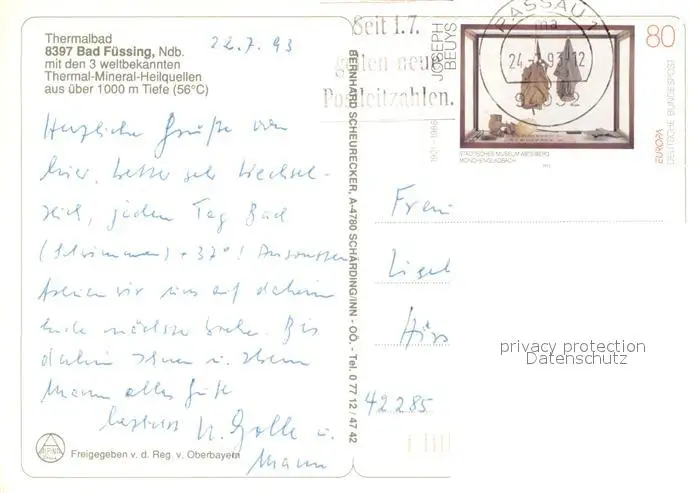 Thermalbad
8397 Bad Füssing, Ndb.
mit den 3 weltbekannten
Thermal-Mineral-Heilquellen
aus über 1000 m Tiefe (56°C)
22.7.93
Herzliche Grüße von
hier. Wetter sehr wechsel-
reich, jeden Tag Bad
(Schwimmen) + 37°! Ansonsten
freuen wir uns auf daheim
Ende nächster Woche. Bis
dahin Ihnen u. Ihrem
Mann alles Gute
U. Golle u.
Mann
Freigegeben v. d. Reg. v. Oberbayern
BERNHARD SCHEURECKER, A-4780 SCHÄRDING/INN - OÖ. - Tel. 0 77 12 / 47 42
Seit 1.7.
gelten neue
Postleitzahlen.
PASSAU 1
24.-7.93-12
JOSEPH
BEUYS
1921-1986
80
DEUTSCHE BUNDESPOST
EUROPA
STÄDTISCHES MUSEUM ABTEIBERG
MÖNCHENGLADBACH
Frau
Lisel
42285
privacy protection
Datenschutz